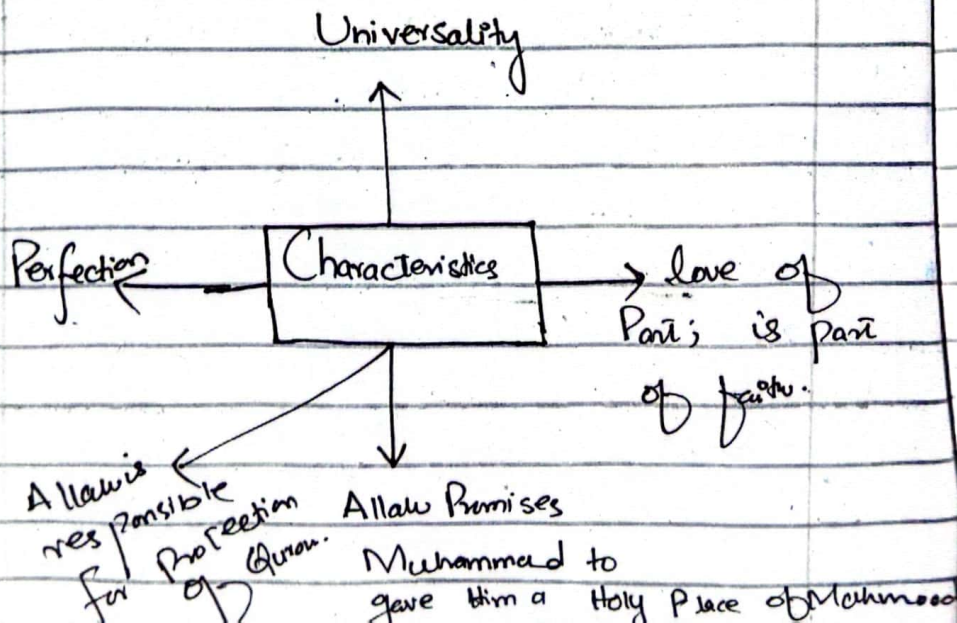 Universality
Perfection
Characteristics
love of
Part; is part
of faith.
Allah is
responsible
for Protection
of Quran.
Allah Promises
Muhammad to
gave Him a Holy Place of Mahmood